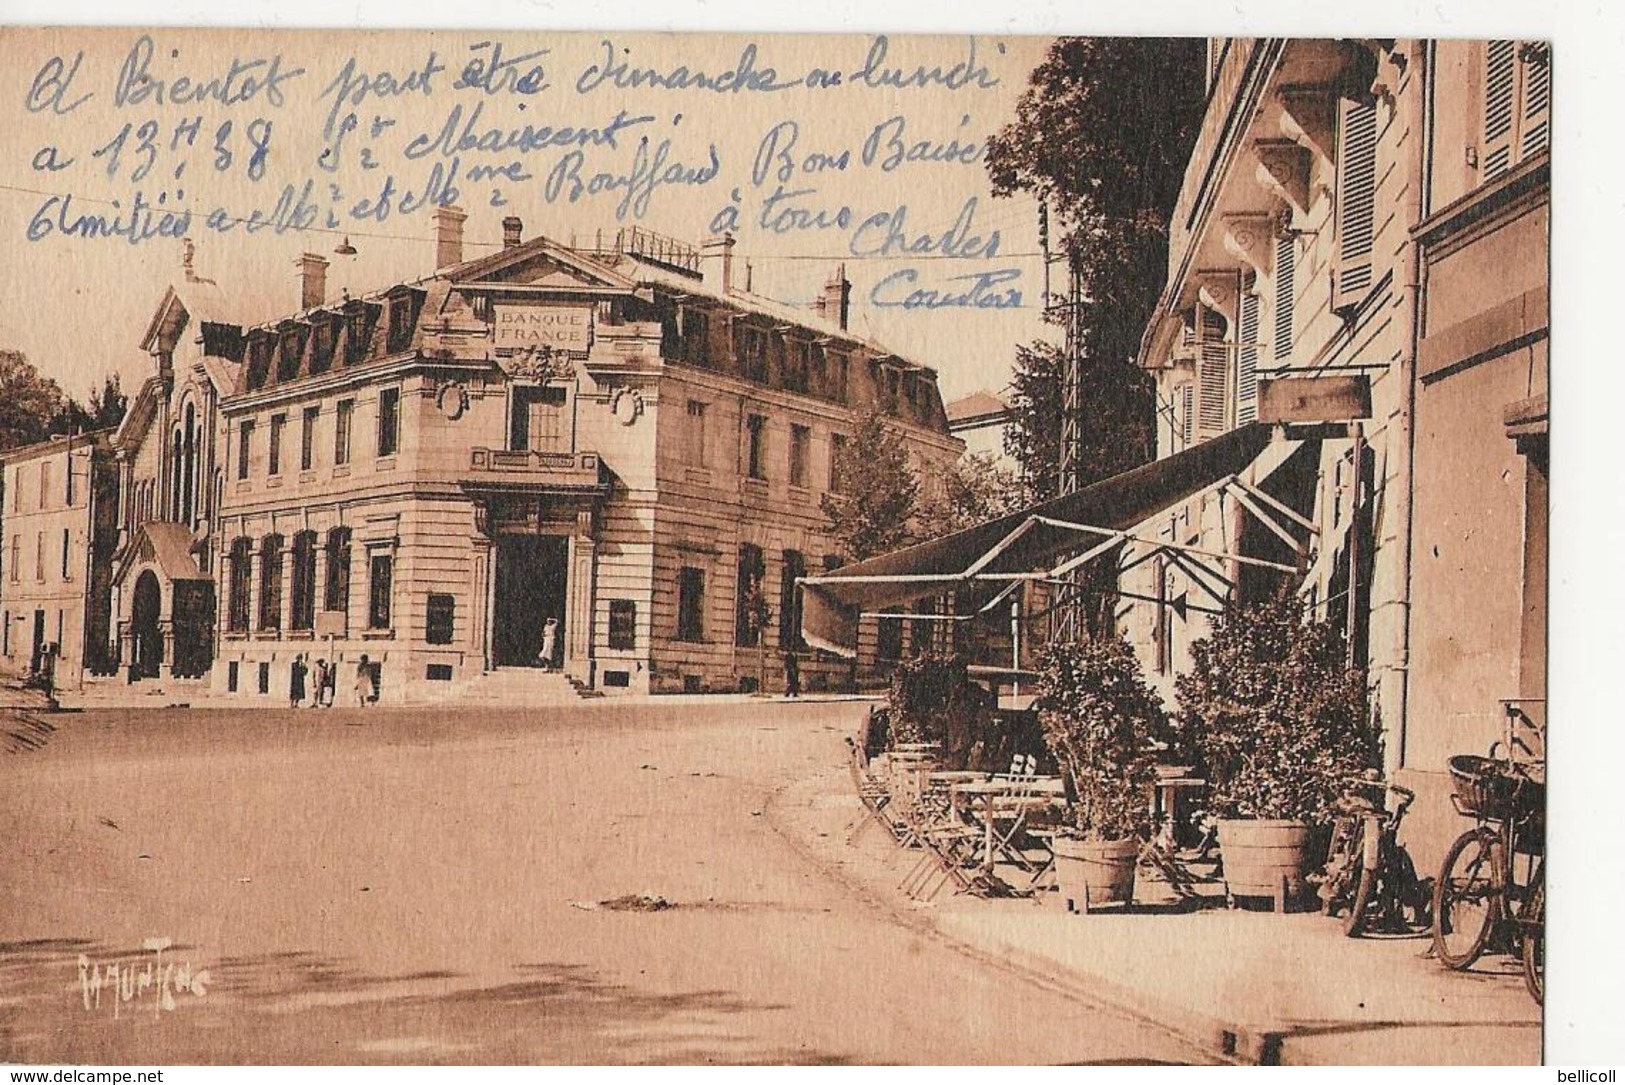 A Bientot peut être dimanche ou lundi
a 13H,38 St Maixent.
Amitiés a Mr et Mme Bouffard Bons Baiser
à tous Charles
BANQUE
FRANCE
RAMUNTCHO
www.delcampe.net
bellicoll